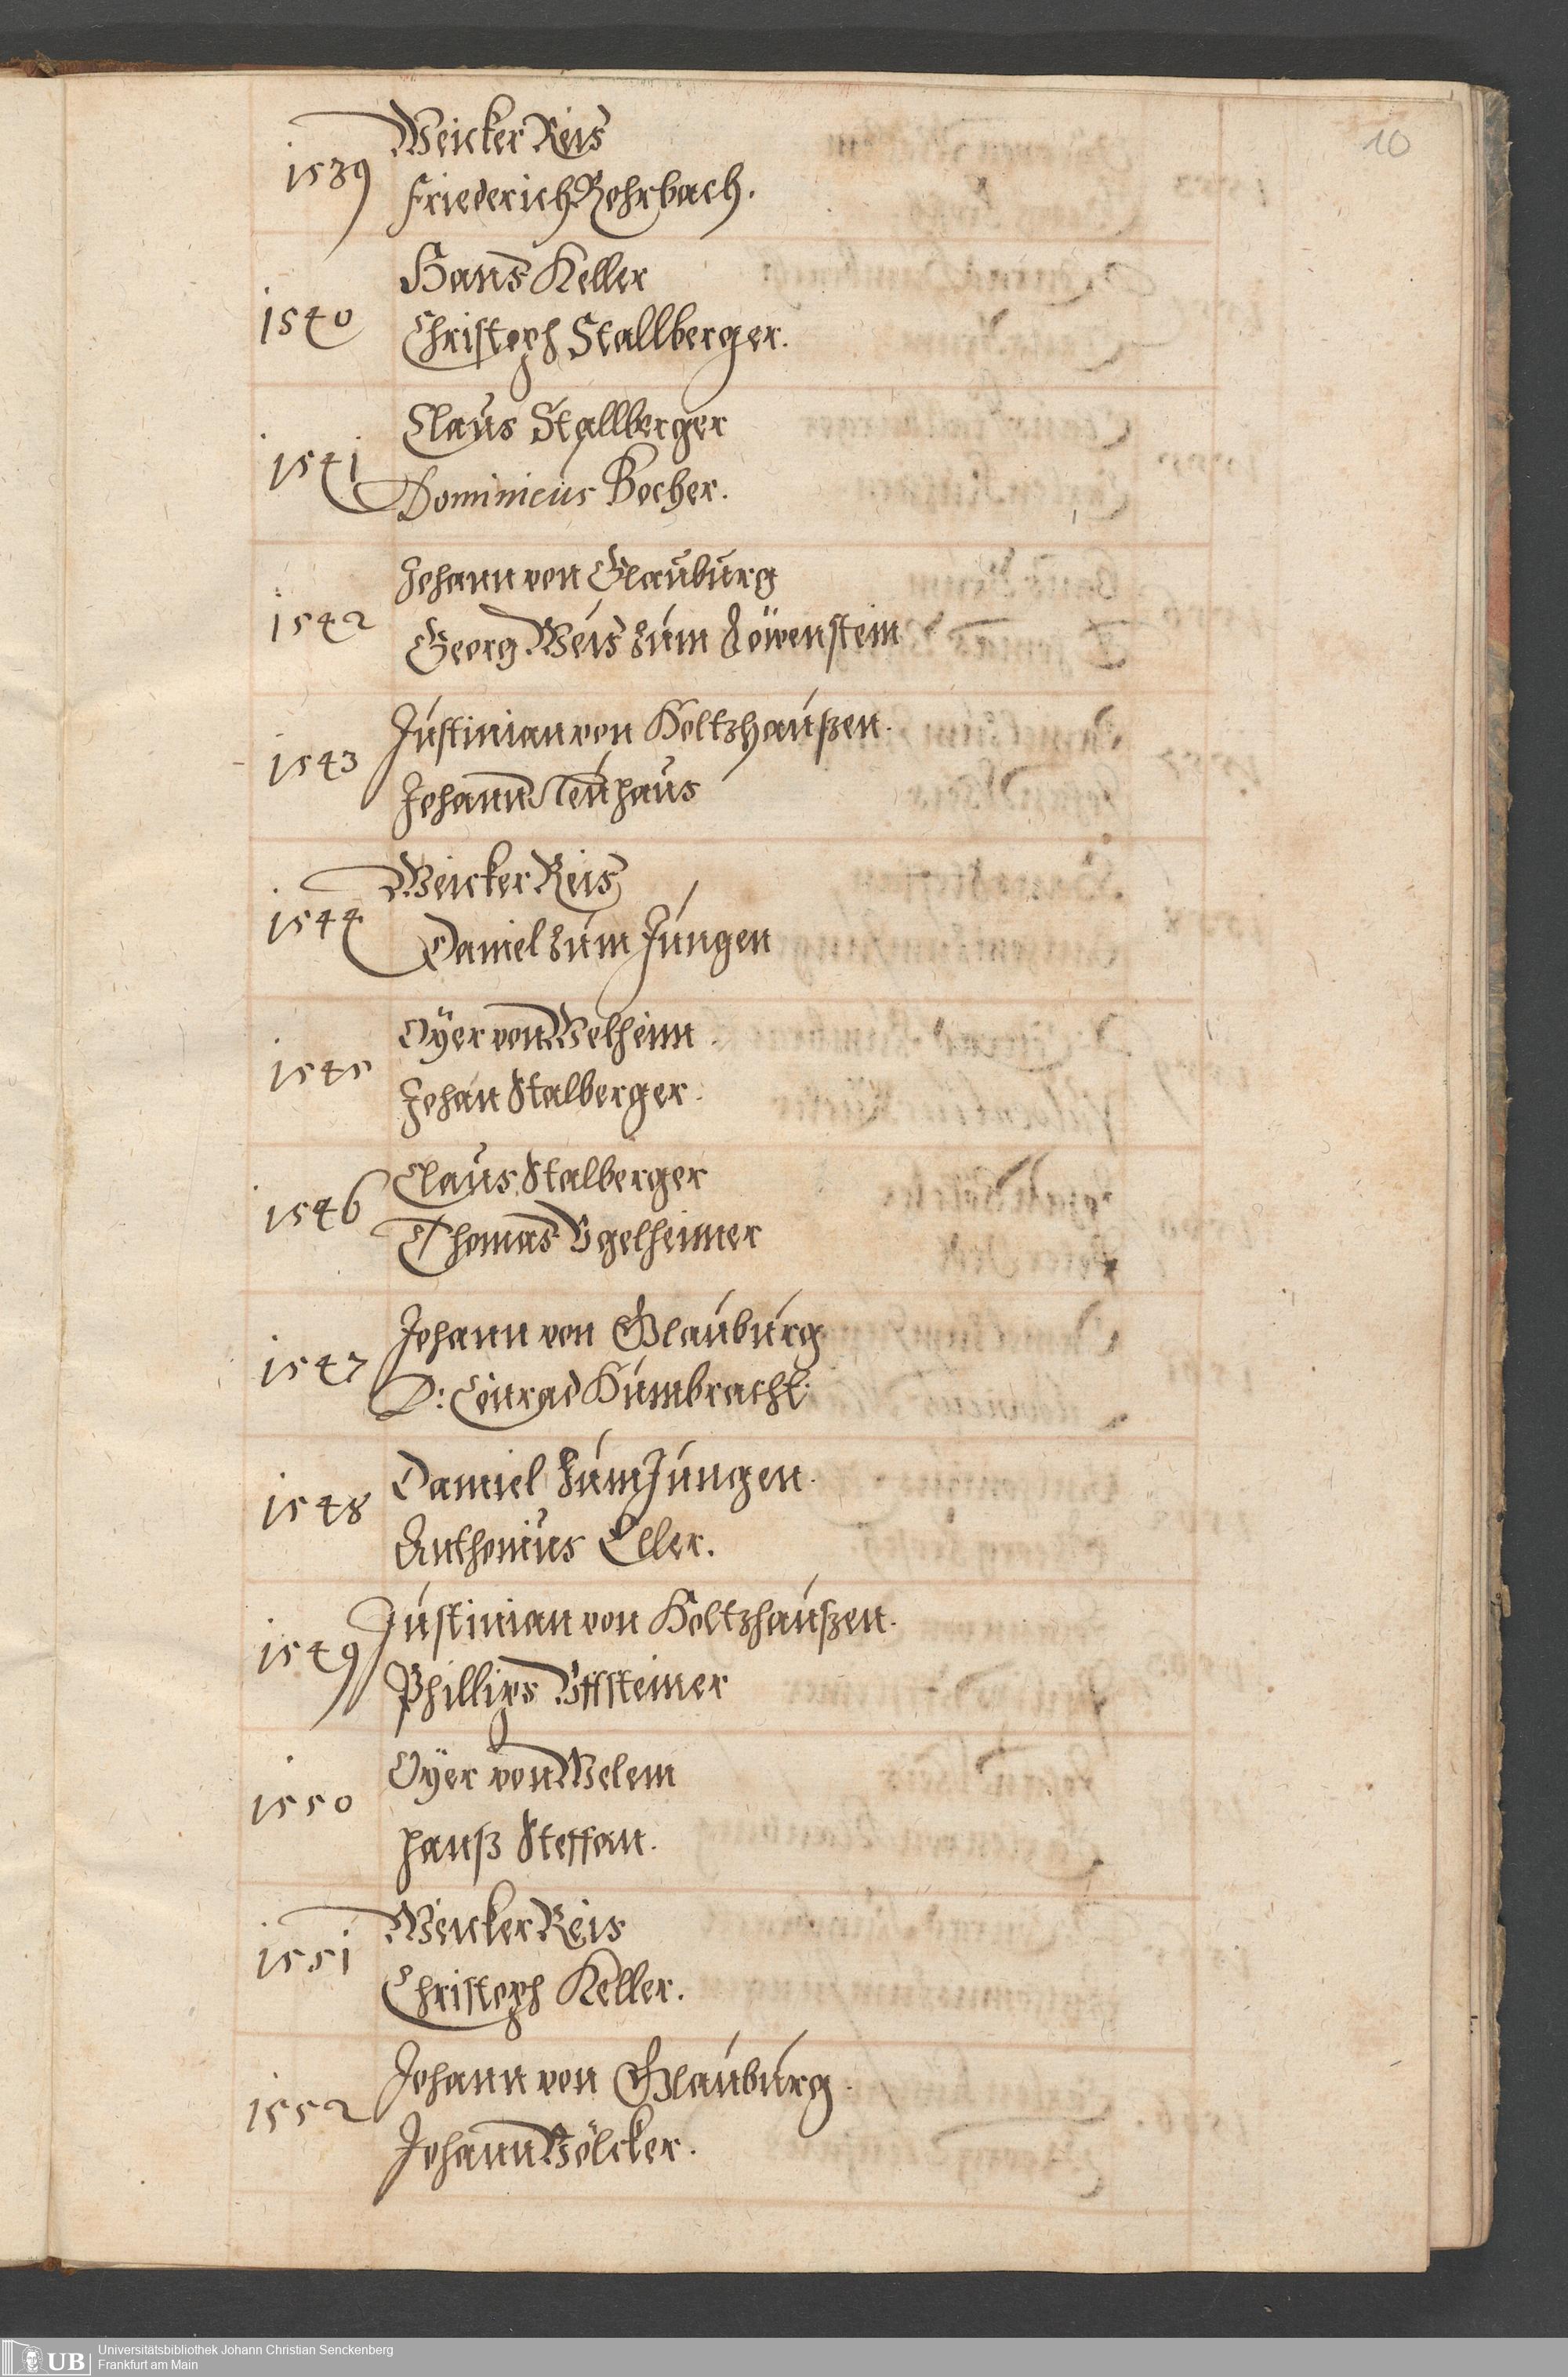 10
1539 Weicker Reis
Friederich Rohrbach.
1540 Hans Keller
Christoph Stallberger.
1541 Claus Stallberger
Dominicus Bocher.
1542 Johann von Glauburg
Georg Weis zum Löwenstein
1543 Justinian von Holtzhaußen.
Johann Neuhaus
1544 Weicker Reis
Daniel zum Jungen
1545 Oÿer von Melheim.
Johan Stalberger.
1546 Claus Stalberger
Thomas Ugelheimer
1547 Johann von Glauburg
D: Conrad Humbracht.
1548 Daniel zum Jungen.
Anthonius Eller.
1549 Justinian von Holtzhaußen.
Phillips Uffsteiner
1550 Oÿer von Melem
hanß Steffan.
1551 Weicker Reis
Christoph Keller.
1552 Johann von Glauburg.
Johann Völcker.
UB Universitätsbibliothek Johann Christian Senckenberg
Frankfurt am Main